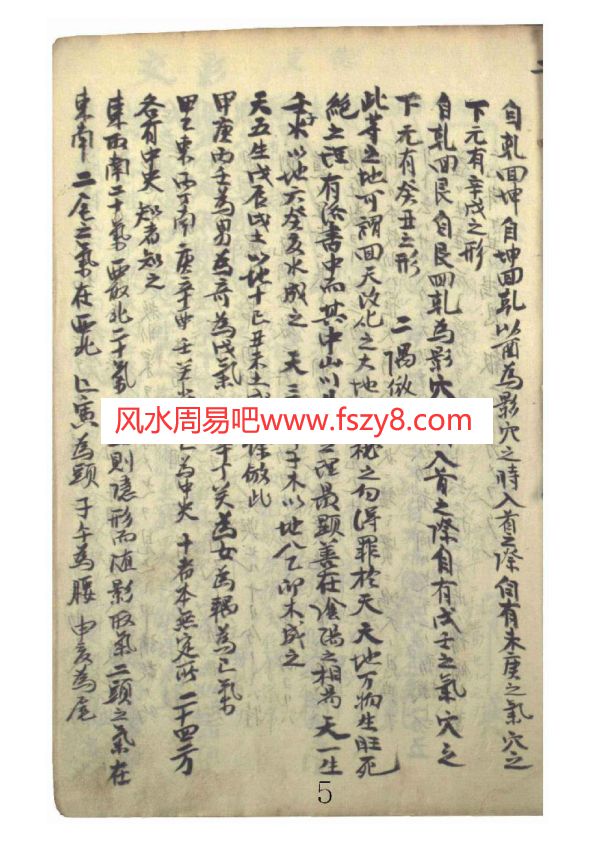 自乾回坤自坤回乾以酉為影穴之時入首之際自有未庚之氣穴之
下元有辛戌之形
自乾回艮自艮回乾為影穴 入首之際自有戌壬之氣穴之
下元有癸丑之形 二隅倣
此等之地可謂回天改化之大地 秘之勿得罪於天天地万物生旺死
絕之理有流書中而其中山 之理最顯善在陰陽之相 天一生
壬水以地六癸亥水成之 天三 木以地八乙卯木成之
天五生戊辰戌土以地十己丑未土 倣此
甲庚丙壬為男為奇為戊氣 為女為耦為己氣
甲乙東丙丁南庚辛 壬癸 為中央 十者本無定所二十四方
各有中央知者知之
東西南二十氣 北二十氣 則隱形而隨影取氣二頭之氣在
東南二尾之氣在西北 巳寅為頭子午為腰申亥為尾
风水周易吧优惠价
www.fszy8.com
5